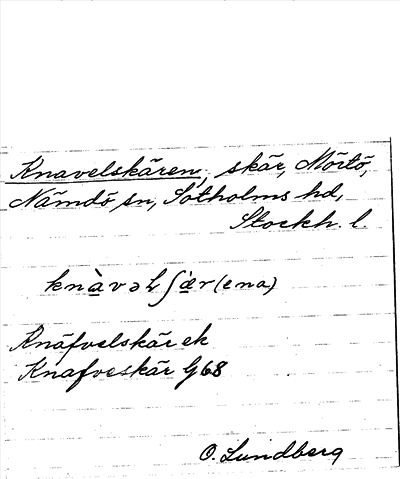 Knavelskären, skär, Mörtö,
Nämdö sn, Sotholms hd,
Stockh. l.
knàvəlʃæ̀r (ena)
Knäfvelskär ek
Knafveskär G68
O. Lundberg